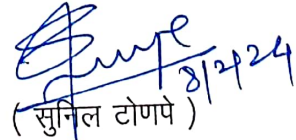 8/2/24
( सुनिल टोणपे )